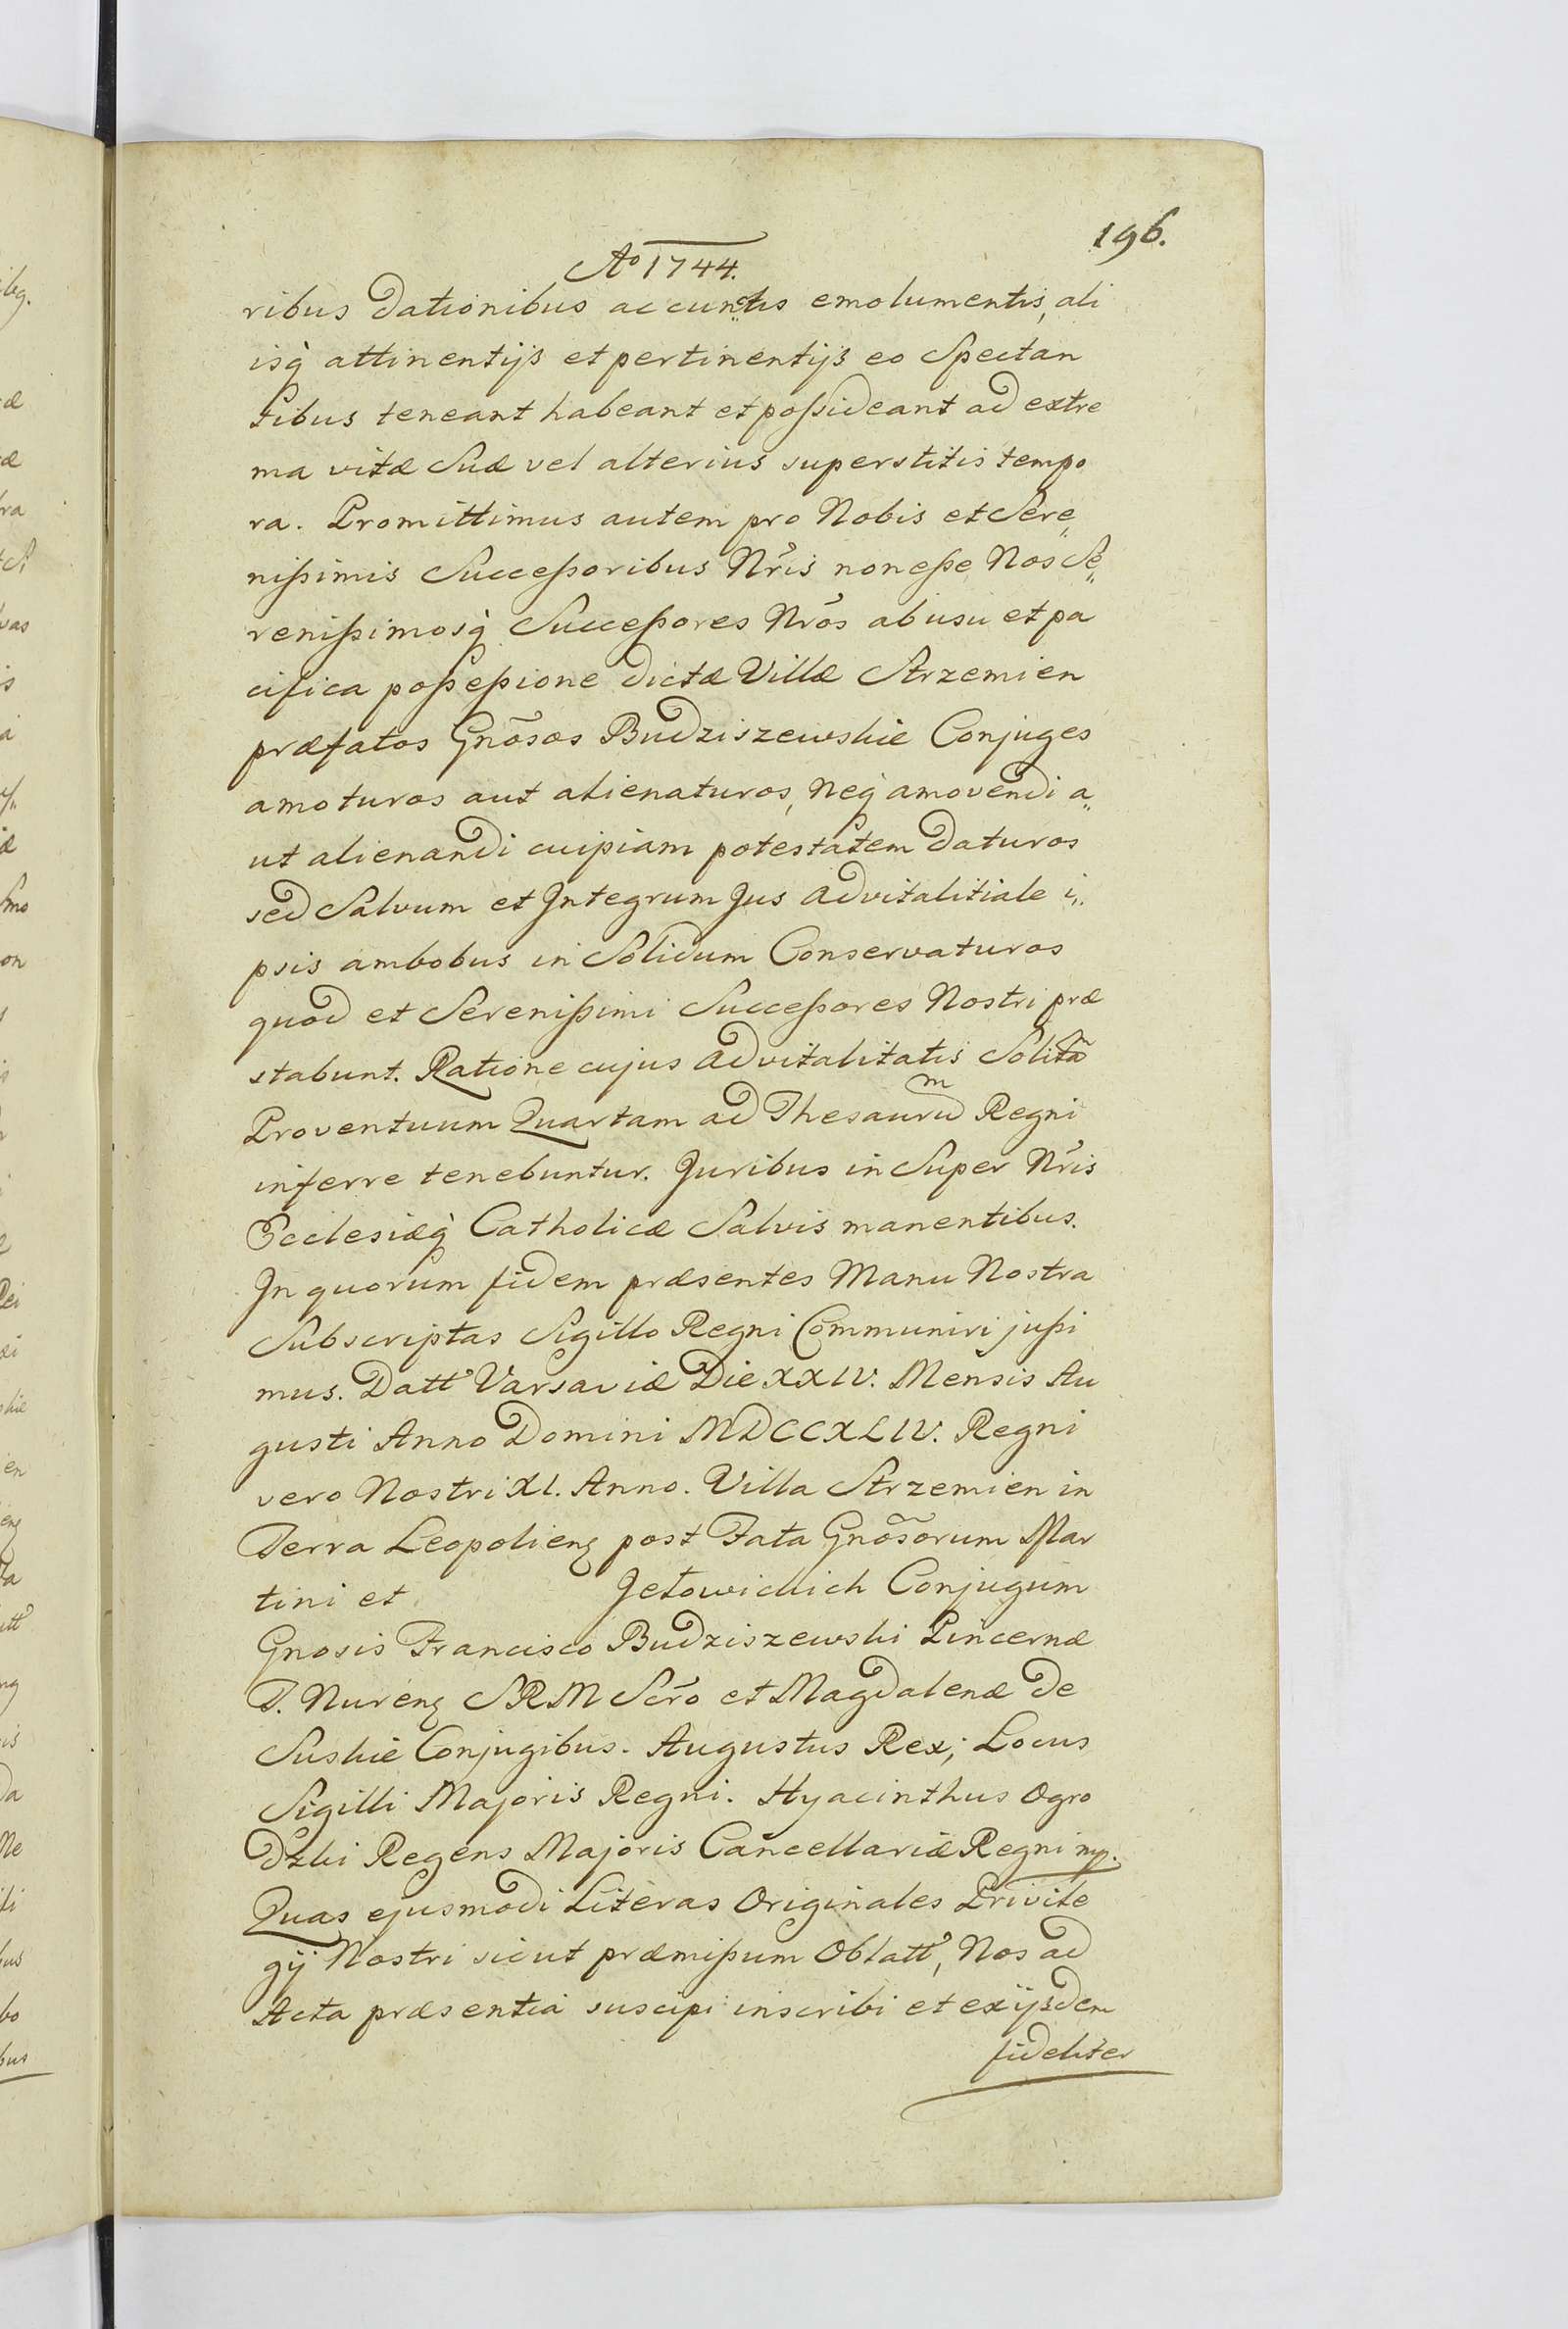 196.
Aº 1744.
ribus dationibus ac cunctis emolumentis, ali
isq̀ attinentijs et pertinentijs eo Spectan
tibus teneant habeant et poſsideant ad extre
ma vitæ Suæ vel alterius superstitis tempo
ra. Promittimus autem pro Nobis et Sere„
niſsimis Succeſsoribus Nr̃is non eſse Nos Se„
reniſsimosq̀ Succeſsores Nr̃os ab usu et pa
cifica poſseſsione dictæ Villæ Strzemien
præfatos Gnõsos Budziszewskie Conjuges
amoturos aut alienaturos, neq̀ amovendi a„
ut alienandi cuipiam potestatem daturos
sed Salvum et Integrum Jus advitalitiale i„
psis ambobus in Solidum Conservaturos
quod et Sereniſsimi Succeſsores Nostri præ
stabunt. Ratione cujus advitalitatis Solitã
Proventuum Quartam ad Thesauruᵐ Regni
inferre tenebuntur. Juribus in Super Nr̃is
Ecclesiæq̀ Catholicæ Salvis manentibus.
In quorum fidem præsentes Manu Nostra
Subscriptas Sigillo Regni Communiri juſsi
mus. Datt Varsaviæ Die XXIV. Mensis Au
gusti Anno Domini MDCCXLIV. Regni
vero Nostri XI. Anno. Villa Strzemien in
Terra Leopolienꝫ post Fata Gnõsorum Mar
tini et Jełowickich Conjugum
Gnosis Francisco Budziszewski Pincernæ
T. Nurenꝫ SRM Scr̃o et Magdalenæ de
Suskie Conjugibus. Augustus Rex; Locus
Sigilli Majoris Regni. Hyacinthus Ogro
dzki Regens Majoris Cancellariæ Regni mp.
Quas ejusmodi Literas Originales Privile
gij Nostri sicut præmiſsum Oblatt, Nos ad
Acta præsentia suscipi inscribi et ex ijsdem
fideliter